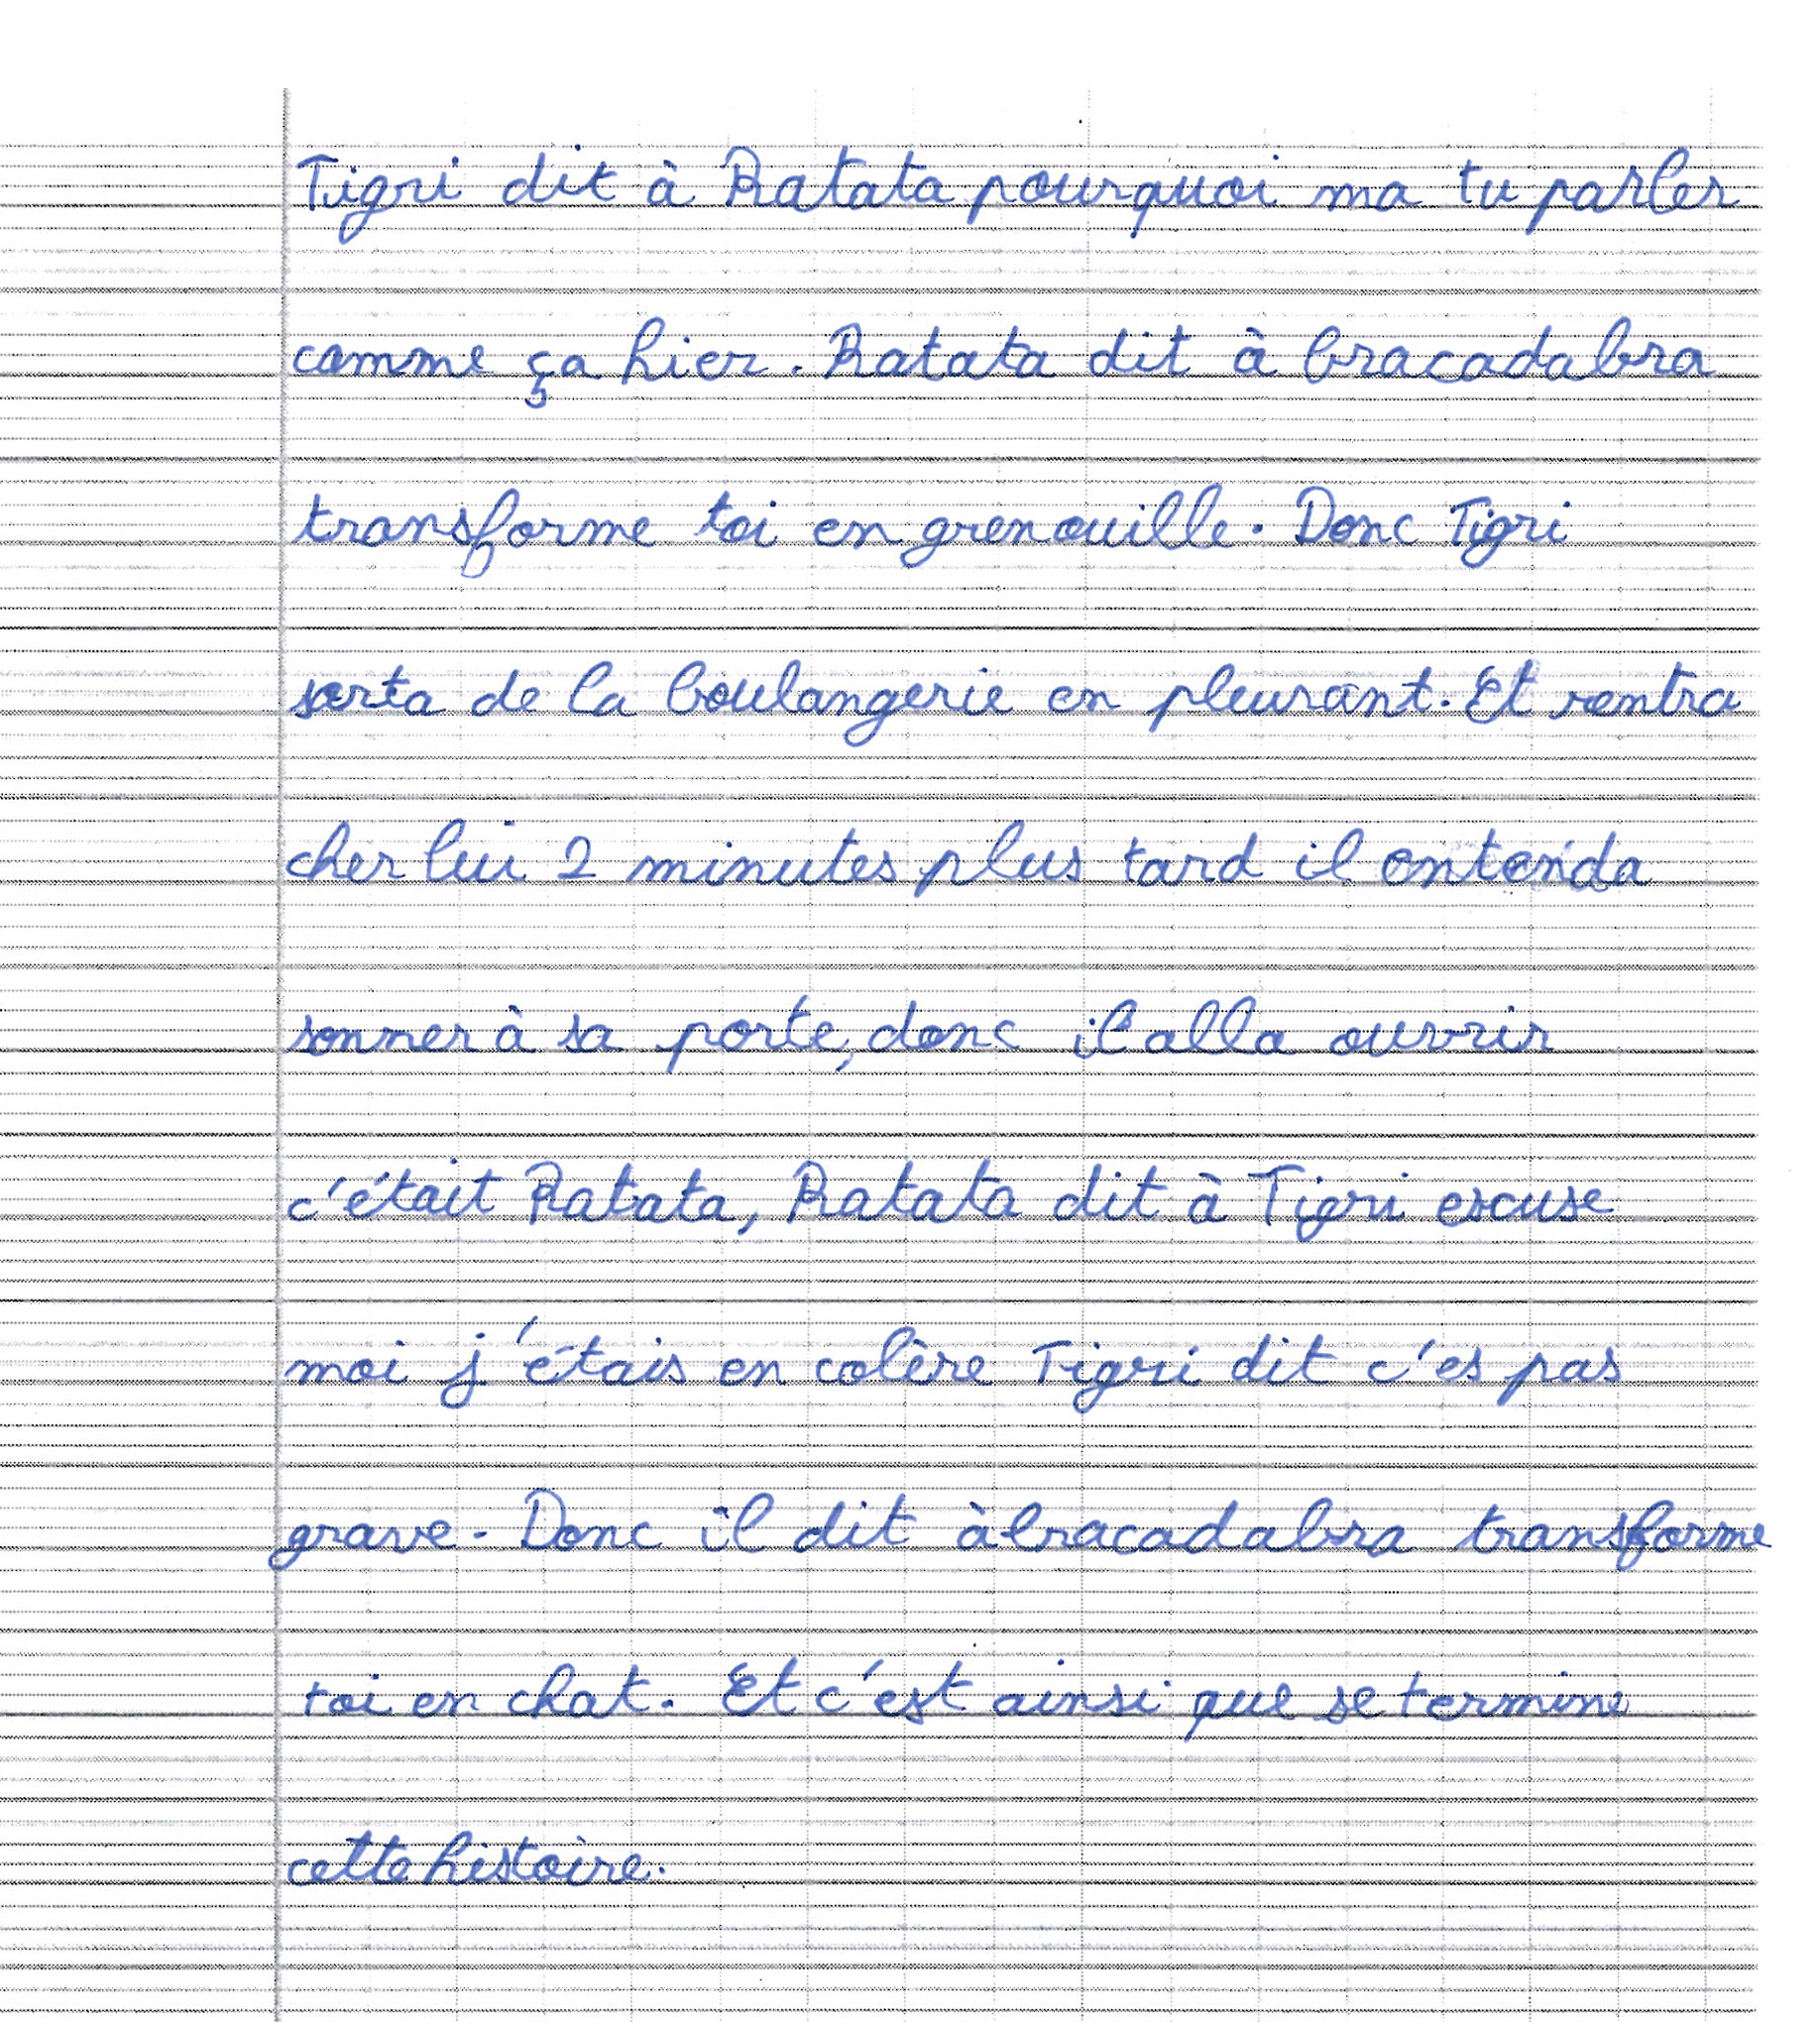 Tigri dit à Ratata pourquoi ma tu parler
comme ça hier. Ratata dit à bracadabra
transforme toi en grenouille. Donc Tigri
serta de la boulangerie en pleurant. Et rentra
cher lui 2 minutes plus tard il entenda
sonner à sa porte, donc il alla ouvrir
c'était Ratata, Ratata dit à Tigri escuse
moi j'étais en colère Tigri dit c'es pas
grave. Donc il dit àbracadabra transforme
toi en chat. Et c'est ainsi que se termine
cette histoire.